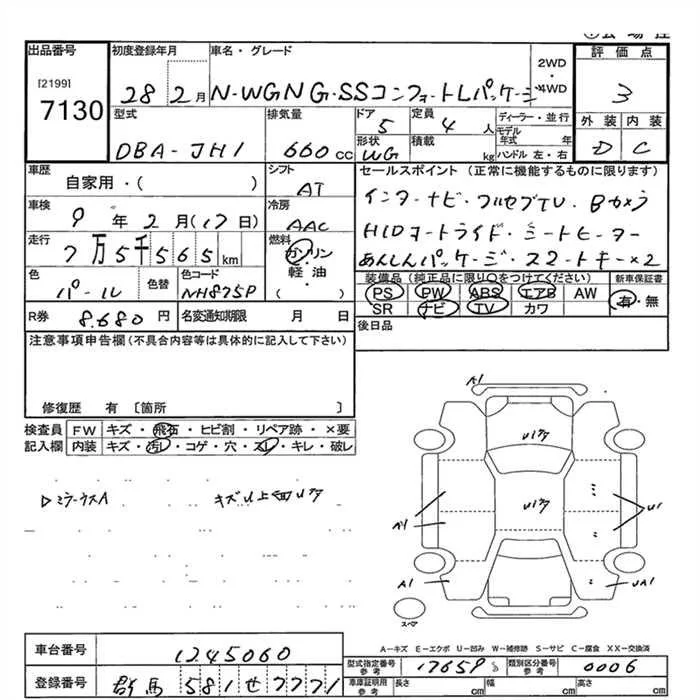 出品番号
[2199]
7130
初度登録年月
28 2月
車名・グレード
N-WGN G・SSコンフォートLパッケージ
2WD・4WD
評価点
3
型式
DBA-JH1
排気量
660 cc
ドア
5
定員
4人
ディーラー・並行
モデル年式 年
形状
WG
積載
kg
ハンドル 左・右
外装 内装
D C
車歴
自家用・( )
シフト
AT
セールスポイント (正常に機能するものに限ります)
インターナビ・フルセグTV・Bカメラ
HIDオートライド・シートヒーター
あんしんパッケージ・スマートキー×2
車検
9年2月(17日)
冷房
AAC
走行
7万5千565km
燃料
ガソリン・軽油・( )
色
パール
色替
色コード
NH875P
装備品 (純正品に限り○をつけてください)
新車保証書
PS PW ABS エアB AW
SR ナビ TV カワ
有・無
R券
8,680円
名変通知期限 月 日
後日品
注意事項申告欄 (不具合内容等は具体的に記入して下さい)
修復歴 有 [箇所 ]
検査員記入欄
FW キズ・飛石・ヒビ割・リペア跡・×要
内装 キズ・汚レ・コゲ・穴・スレ・キレ・破レ
キズU上面U17
A1
U17
U17
A1
U1
A1
UA1
スペア
A−キズ E−エクボ U−凹み W−補修跡 S−サビ C−腐食 XX−交換済
車台番号
1245060
登録番号
群馬 581 せ 7771
型式指定番号 参考
17659
類別区分番号 参考
0006
車庫証明用 参考
長さ cm
幅 cm
高さ cm